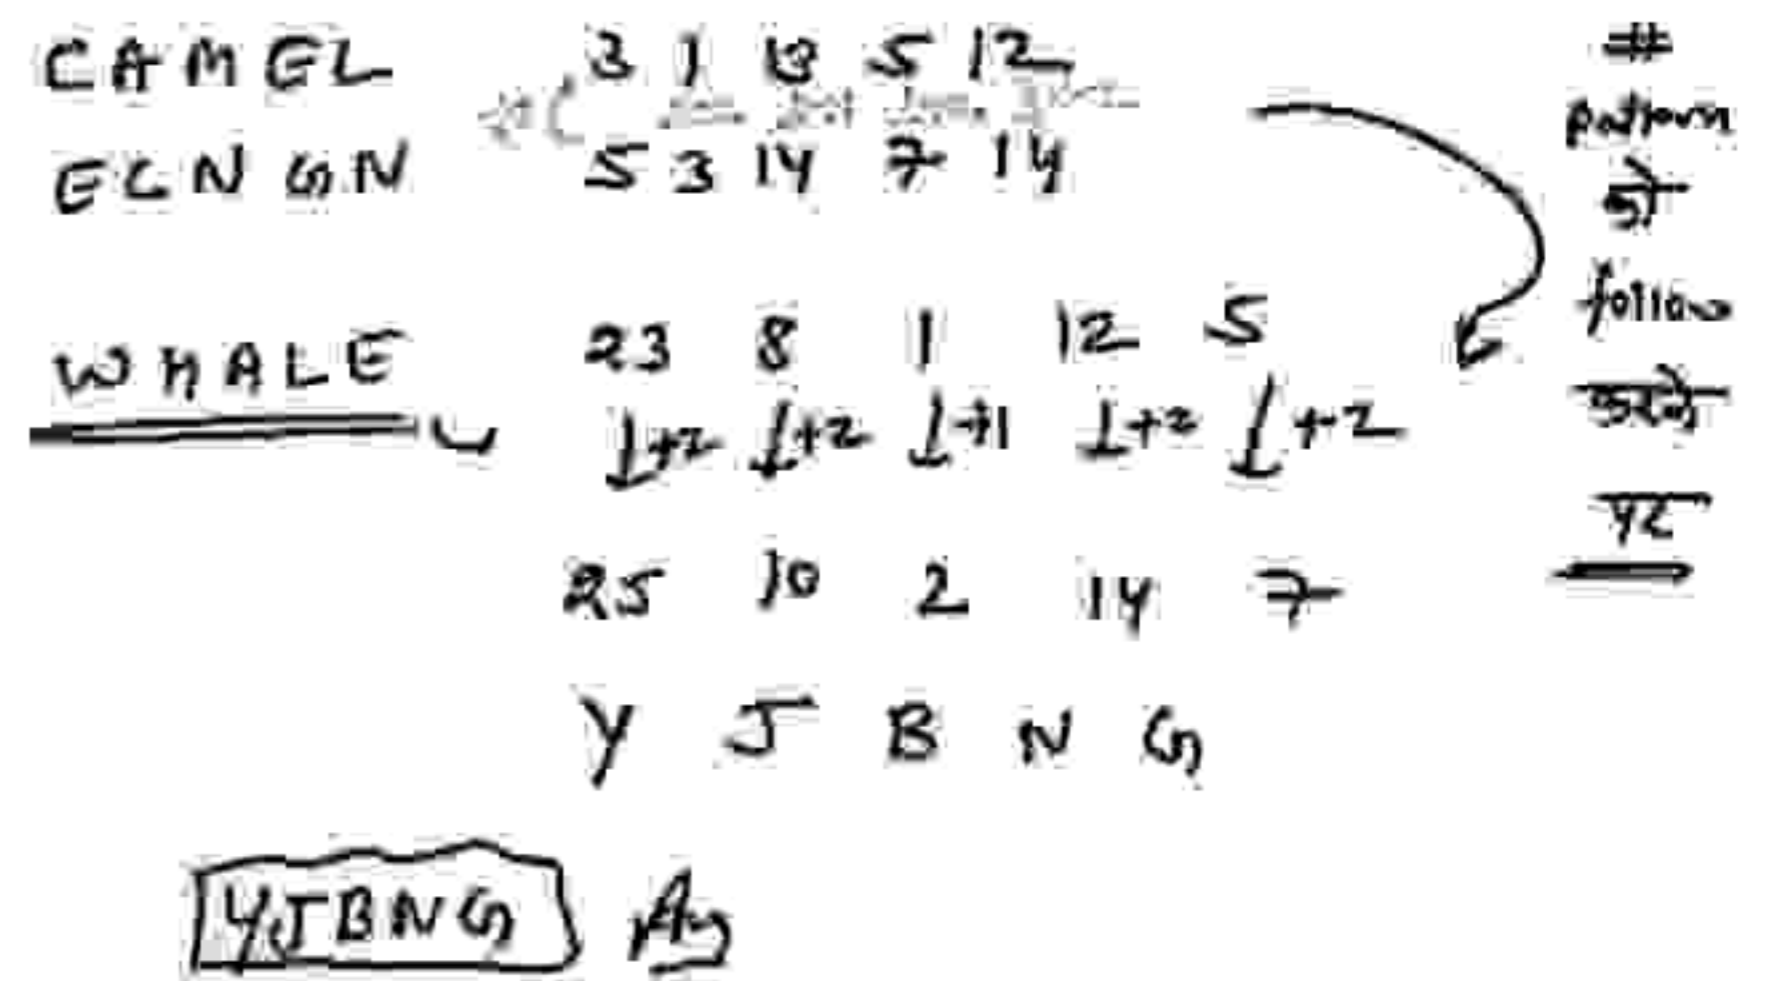 CAMEL 3 1 13 5 12
ECNGN 5 3 14 7 14
WHALE 23 8 1 12 5
+2 +2 +1 +2 +2
25 10 2 14 7
Y J B N G
YJBNG Ans
#
pattern
को
follow
करने
पर